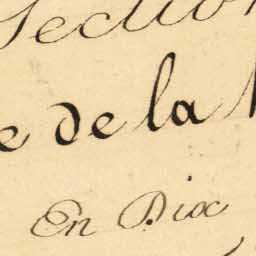 Section
e de la
En Dix